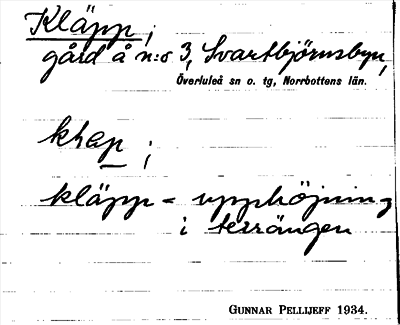 Kläpp;
gård å n:o 3, Svartbjörnsbyn,
Överluleå sn o. tg, Norrbottens län.
klap;
kläpp = upphöjning
i terrängen
GUNNAR PELLIJEFF 1934.